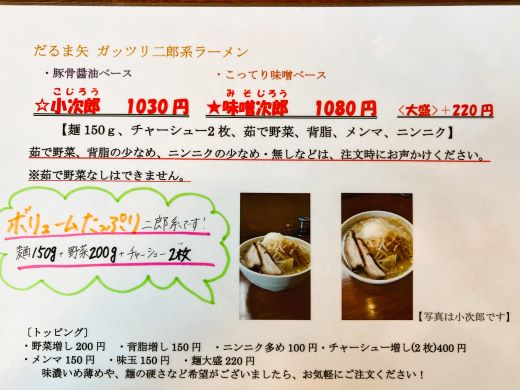 だるま矢 ガッツリ二郎系ラーメン
・豚骨醤油ベース ・こってり味噌ベース
こじろう みそじろう
☆小次郎 1030円 ★味噌次郎 1080円 <大盛>+220円
【麺150g、チャーシュー2枚、茹で野菜、背脂、メンマ、ニンニク】
茹で野菜、背脂の少なめ、ニンニクの少なめ・無しなどは、注文時にお声かけください。
※茹で野菜なしはできません。
ボリュームたっぷり 二郎系です!
麺150g+野菜200g+チャーシュー2枚
【写真は小次郎です】
〔トッピング〕
・野菜増し200円 ・背脂増し150円 ・ニンニク多め100円・チャーシュー増し(2枚)400円
・メンマ150円 ・味玉150円 ・麺大盛220円
味濃いめ薄めや、麺の硬さなど希望がございましたら、お気軽にご注文ください!